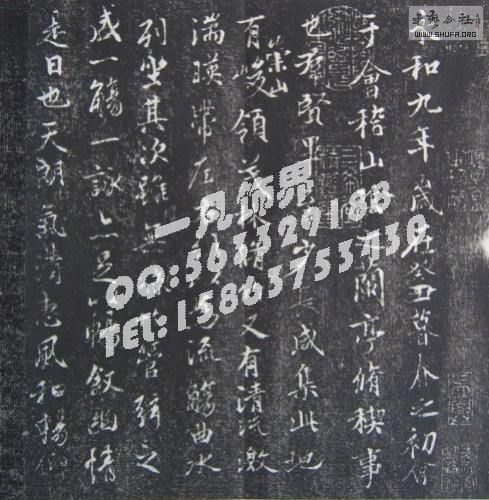 和九年歲在癸丑暮春之初會
于會稽山陰之蘭亭脩禊事
也群賢畢至少長咸集此地
有崇山峻領茂林脩竹又有清流激
湍暎帶左右引以為流觴曲水
列坐其次雖無絲竹管弦之
盛一觴一詠亦足以暢敘幽情
是日也天朗氣清惠風和暢仰
一凡饰界
QQ:563329188
TEL:15863753439
书艺公社
WWW.SHUFA.ORG